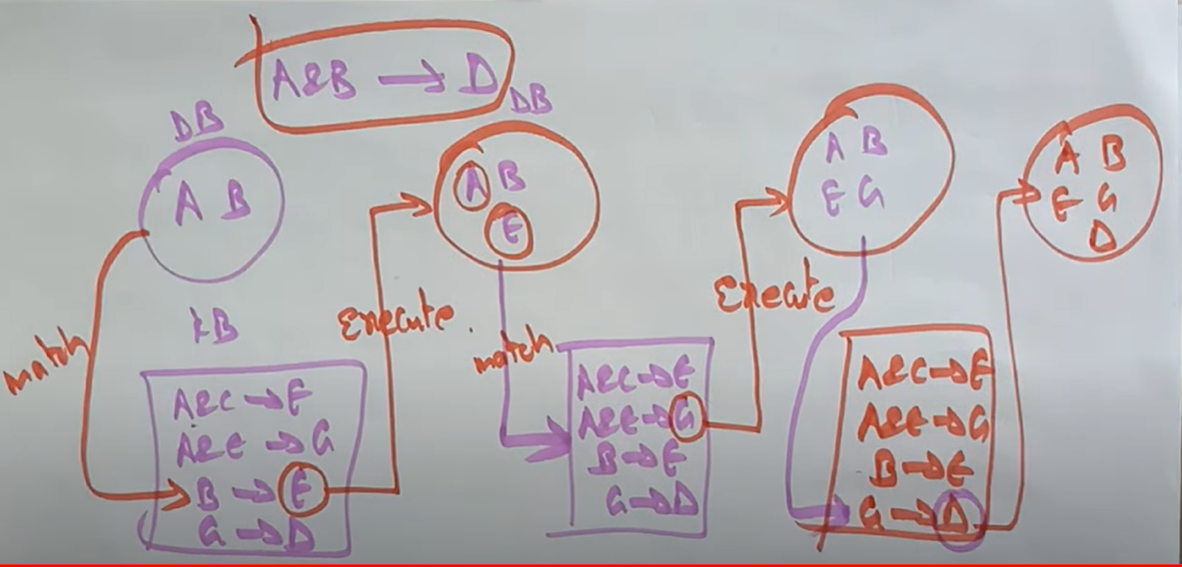 A&B → D
DB
A B
match
KB
A&C → F
A&E → G
B → E
G → D
Execute.
DB
A B
E
match
A&C → F
A&E → G
B → E
G → D
Execute
A B
E G
A&C → F
A&E → G
B → E
G → D
A B
E G
D